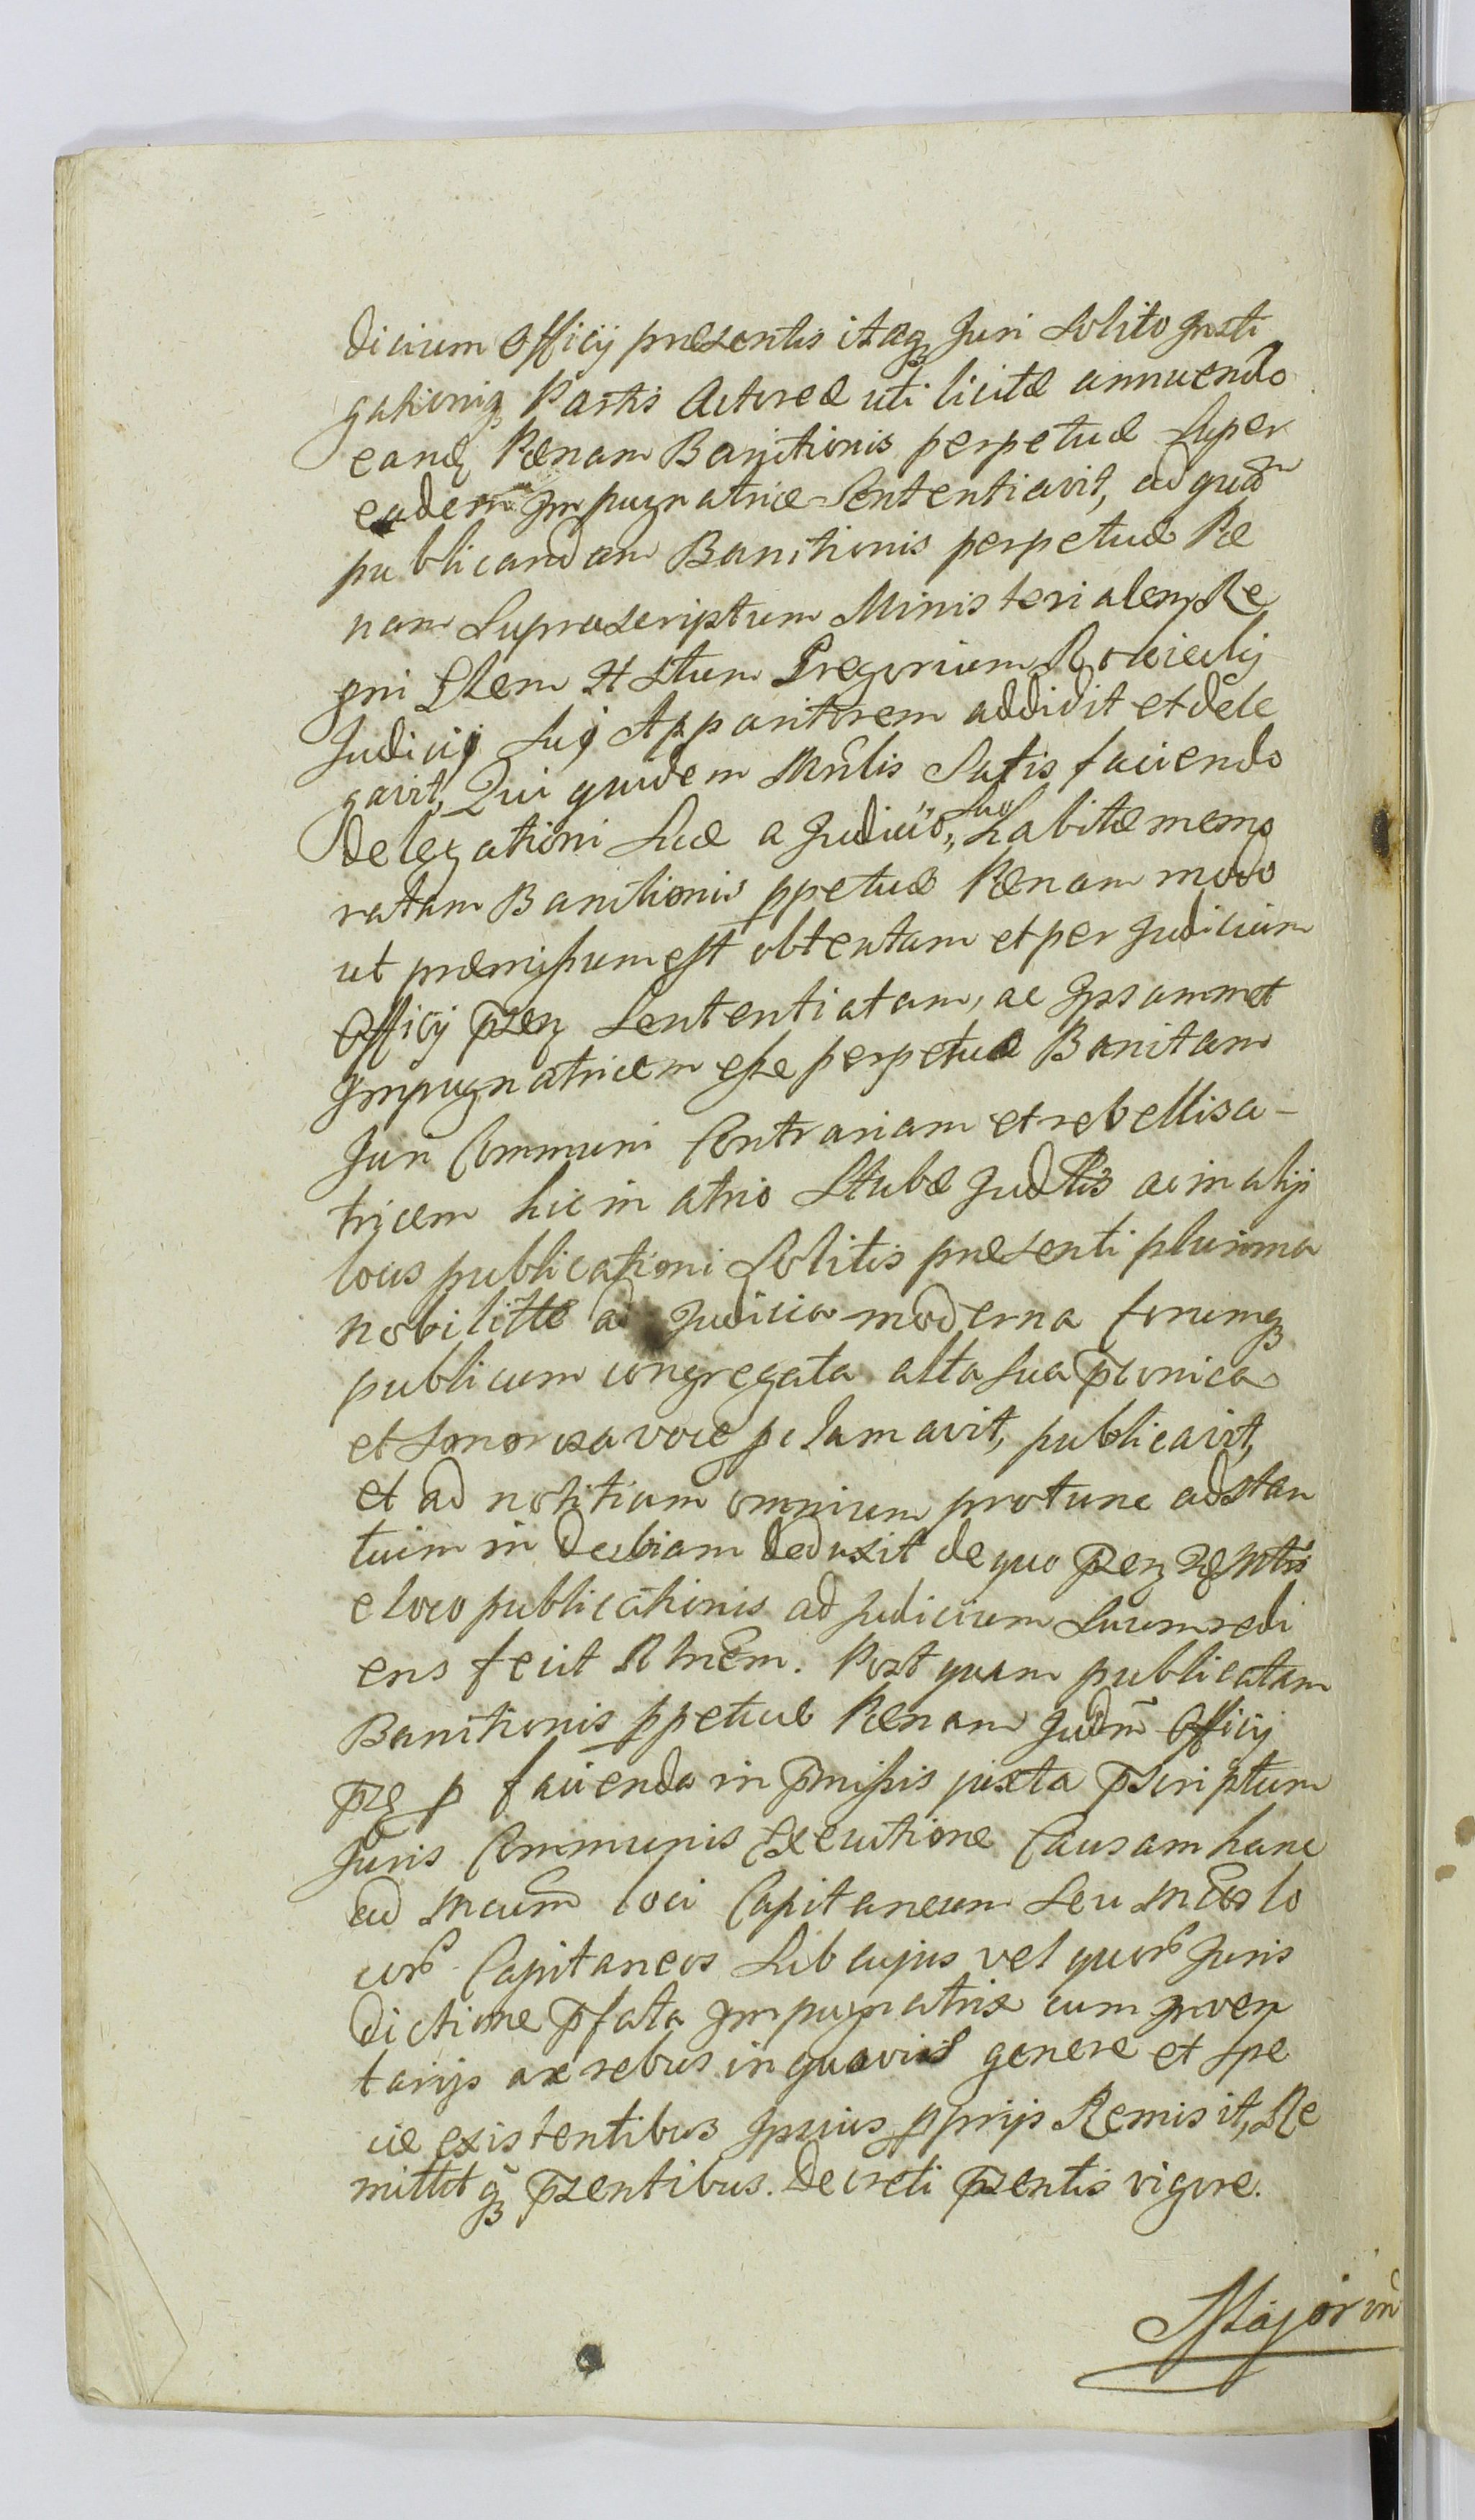 dicium Officij præsentis itaq3 Juri solito Insti
gationiq3 Partis Actoreæ uti licitæ annuendo
eandẽ Pœnam Banitionis perpetuæ super
eadem Impugnatrice Sententiavit, ad quam
publicandam Banitionis perpetuæ Pœ
nam suprascriptum Ministerialem Re
gni Glem Hstum Gregorium
Judicij sui Apparitorem addidit et dele
gavit, Qui quidem Mñlis satis faciendo
delegationi suæ a Judicio suo habitæ memo
ratam Banitionis ppetuæ Pœnam modo
ut præmissum est obtentam et per Judicium
Officij pñs Sententiatam, ac Ipsammet
Impugnatricem esse perpetuæ Banitam
Juri Communi Contrariam et rebellisa-
tricem hic in atrio Stubæ Judlis ac in alijs
locis publicationi solitis præsenti plurima
nobilitte ad Judicia moderna forumq3
publicum congregata alta sua p̃conica
et sonorosa voce pclamavit, publicavit,
et ad notitiam omnium protunc adstan
tuim in dubiam deduxit de quo
e loco publicationis ad Judicium suum redi
ens fecit Rlnẽm. Post quam publicatam
Banitionis ppetuæ Pœnam Judm̃ Officij
p facienda in p̃missis juxta p̃scriptum
Juris Communis Executione Causam hanc
ad Mcum̃ loci Capitaneum seu Mc̃os lo
corũ Capitaneos sub cujus vel quorũ Juris
dictione p̃fata Impugnatrix cum Inven
tarijs ac rebus in quovis genere et spe
cie existentibus Ipsius pprijs Remisit, Re
mittit q3 p̃sentibus. Decreti p̃sentis vigore.
Major